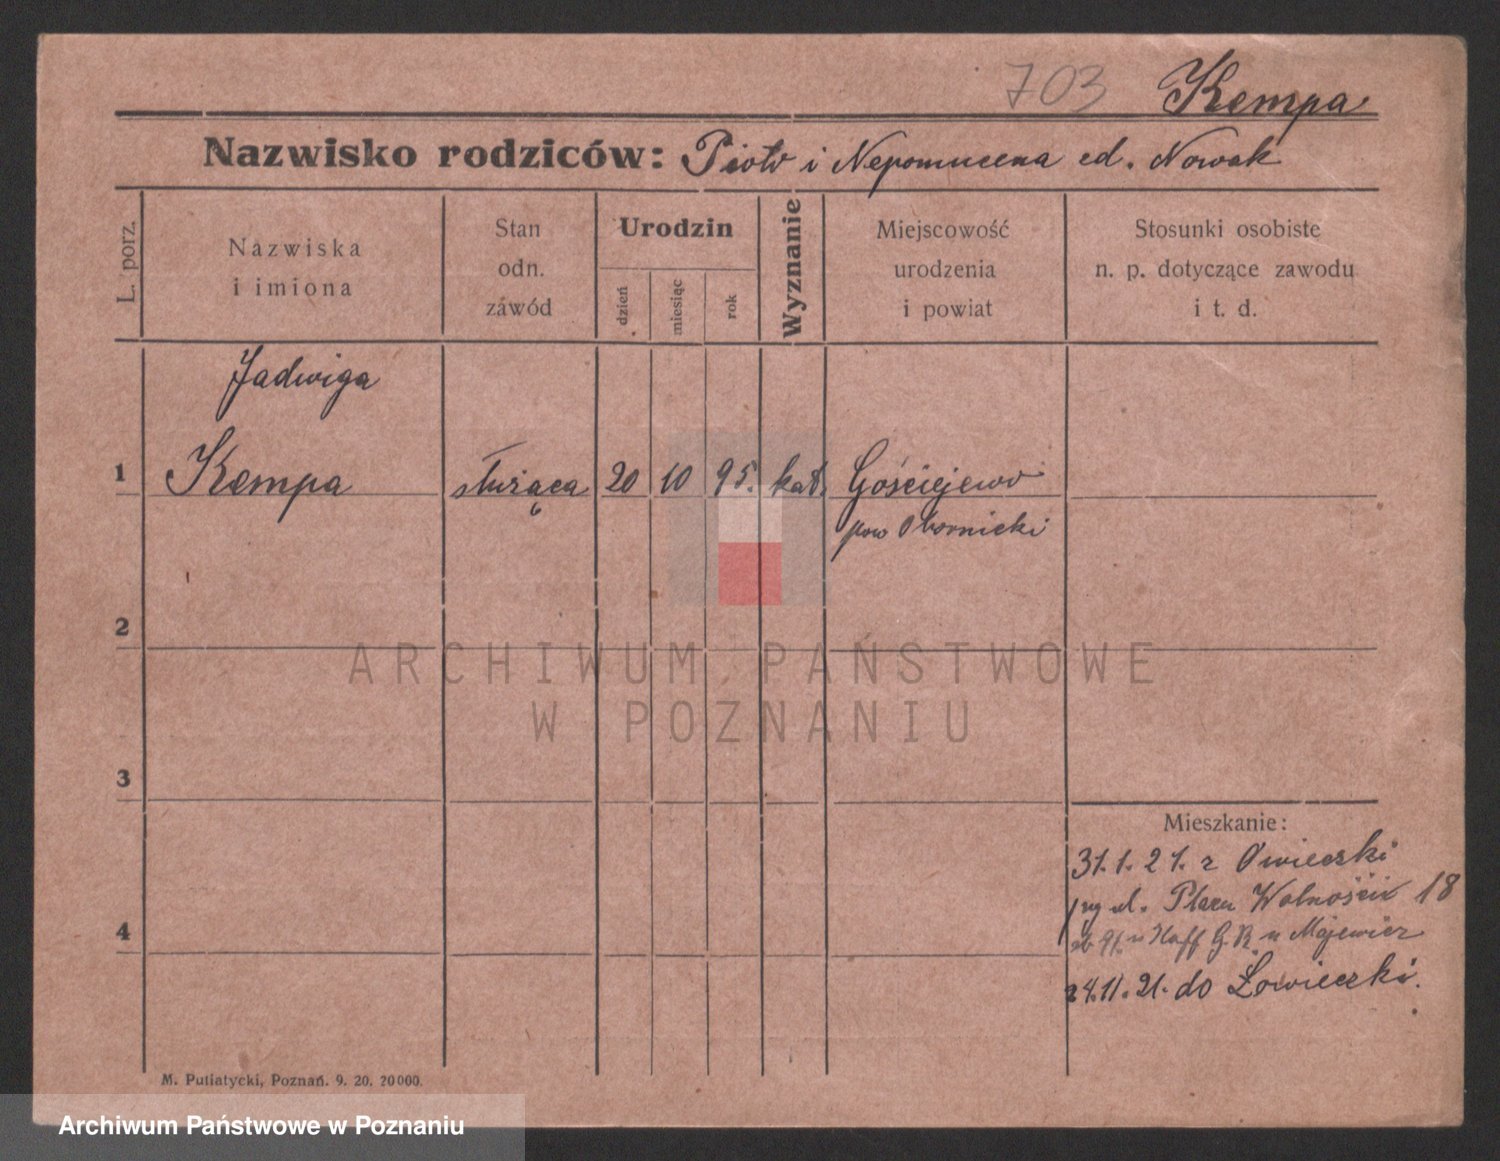 703 Kempa
Nazwisko rodziców: Piotr i Nepomucena cd. Nowak
L. porz.
Nazwiska
i imiona
Stan
odn.
zawód
Urodzin
dzień
miesiąc
rok
Wyznanie
Miejscowość
urodzenia
i powiat
Stosunki osobiste
n. p. dotyczące zawodu
i t. d.
Jadwiga
1 Kempa służąca 20 10 95. kat. Gościejewo
pow Obornicki
2
3
4
Mieszkanie:
31.1.21. z Owieczki
ul. Placu Wolności 18
Hoff G.R. u Majewicz
24.11.21. do Łowieczki.
M. Putiatycki, Poznań. 9. 20. 20000.
ARCHIWUM PAŃSTWOWE
W POZNANIU
Archiwum Państwowe w Poznaniu